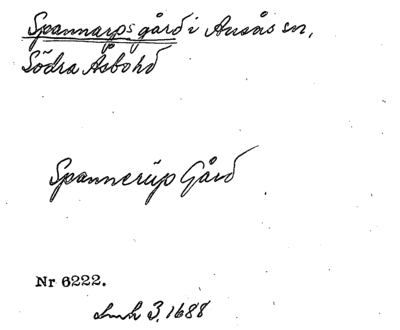 Spannarps gård i Ausås sn,
Södra Åsbo hd
Spannerüp Gård
Nr 6222.
3. 1688